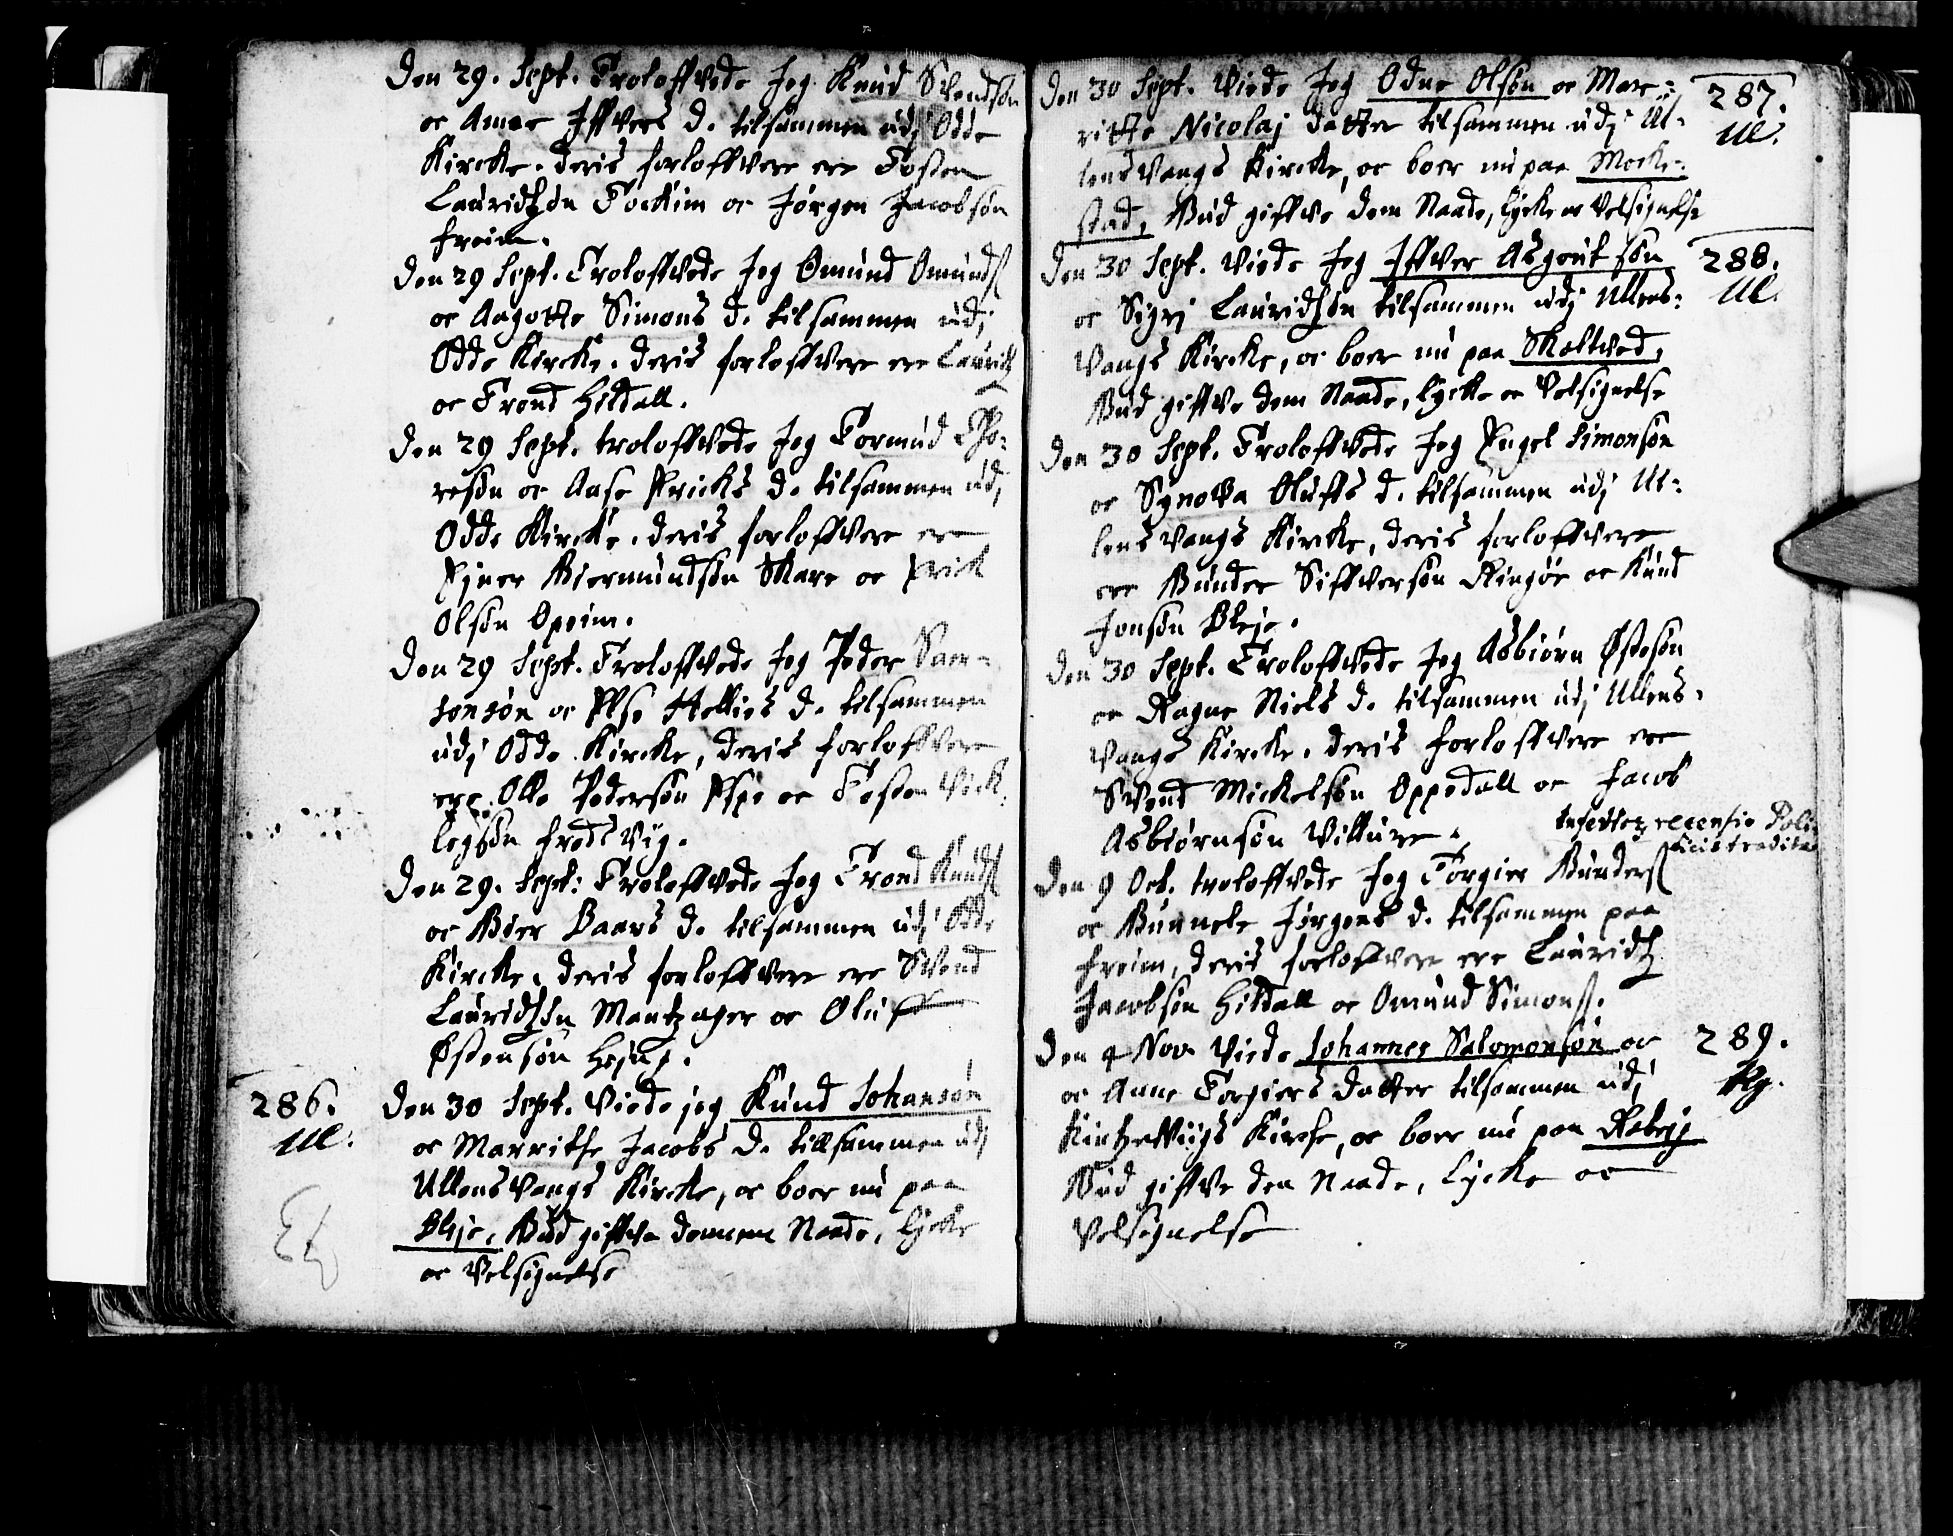 Den 29. Sept. Troloffvede Jeg Knud Svendsøn
oc Anne Iffvers d. tilsammen udj Odde
Kircke. deris forloffvere ere Tosten
Lauridsøn Tockim oc Jørgen Jacobsøn
Freim.
Den 29 Sept. Troloffvede Jeg Omund Omunds
oc Aagotte Simons d. tilsammen udj
Odde Kircke. deris forloffvere ere Lauritz
oc Trond Hildall.
Den 29 Sept. troloffvede Jeg Tormud Tho-
resøn oc Aase Ericks d. tilsammen udj
Odde Kircke. deris forloffvere ere
Ejner Biermundsøn Skare oc Erick
Olsøn Opeim.
Den 29 Sept. Troloffvede Jeg Peder Sam-
sonsøn oc Else Hellies d. tilsammen
udj Odde Kircke, deris forloffvere
ere Olle Pedersøn Espe oc Tosten Vick-
legsøn Fredsvig.
Den 29. Sept: Troloffvede Jeg Trond Knuds
oc Baars d. tilsammen udj Odde
Kircke. deris forloffvere ere Svend
Lauridsøn Mantzager oc Oluff
Østensøn
286. Den 30 Sept. Viede jeg Knud Johansøn
Ul: oc Marritte Jacobs d. tillsammen udj
Ullensvangs Kircke, oc boer nu paa
Bleje, Gud giffve dennem Naade, Lycke
oc Velsignelse
Den 30 Sept. Viede Jeg Odne Olsøn oc Mar- 287.
ritte Nicolaj datter tilsammen udj Ul- Ul.
lensvangs Kircke, oc boer nu paa Mocke-
stad, Gud giffve dem Naade, Lycke oc Velsignelse
Den 30 Sept. Viede Jeg Iffver Asgoutsøn 288.
oc Sigrj Lauridsøn tilsammen udj Ullens- Ul.
vangs Kircke, oc boer nu paa Skaltved,
Gud giffve dem Naade, Lycke oc Velsignelse
Den 30 Sept. Troloffvede Jeg Engel Simonsøn
oc Synova Oluffs d. tilsammen udj Ul-
lensvangs Kircke, deris forloffvere
ere Gunder Siffversøn Ringøe oc Knud
Jonsøn Bleje.
Den 30 Sept. Troloffvede Jeg Asbiørn Østesøn
oc Ragne Niels d. tilsammen udj Ullens-
vangs Kircke. deris forloffvere ere
Svend Mickelsøn Oppedall oc Jacob
Asbiørnsøn Villure.
recensio
tradita
Den 9 Oct. troloffvede Jeg Torgier Gunders
oc Gunnele Jørgens d. tilsammen paa
Freim, deris forloffvere ere Lauridtz
Jacobsøn Hildall oc Omund Simons.
Den 4 Nov. Viede Johannes Salomonsøn oc 289.
oc Anne Torgiers datter tilsammen udj Kg.
Kintzervigs Kircke, oc boer nu paa
Gud giffve den Naade, Lycke oc
Velsignelse